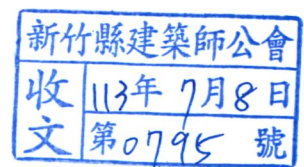 新竹縣建築師公會
收文
113年7月8日
第0795號